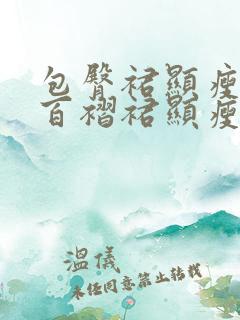 包臀裙顯瘦
百褶裙顯瘦
溫儀
未经同意禁止转载